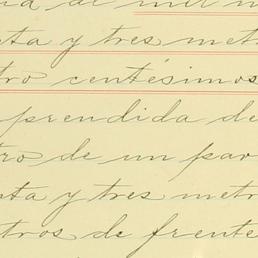 de mil
sta y tres met
tro centésimos
prendida de
tro de un par
sta y tres metr
tros de frente